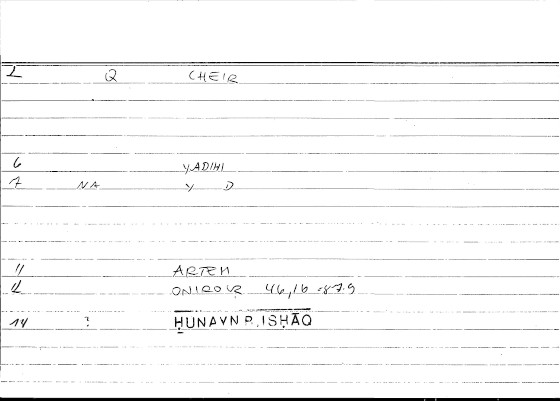 2 Q CHEIR
6 YADIHI
7 NA Y D
11 ARTEM
12 ONIROUR 46,16-87.9
14 ? ḤUNAYN B. ISḤĀQ